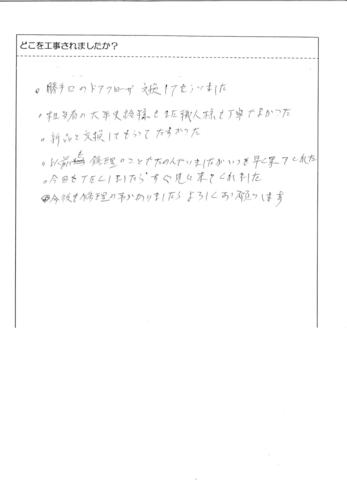 どこを工事されましたか？
。勝手口のドアクローザ 交換してもらいました
。担当者の大 様も また職人様も丁寧でよかった
。新品と交換してもらって たすかった
。以前も修理のことでたのんでいましたがいつも早く来てくれた
。今日もTELしましたら すぐ見に来てくれました
。今後も修理の事がありましたら よろしくお願いします